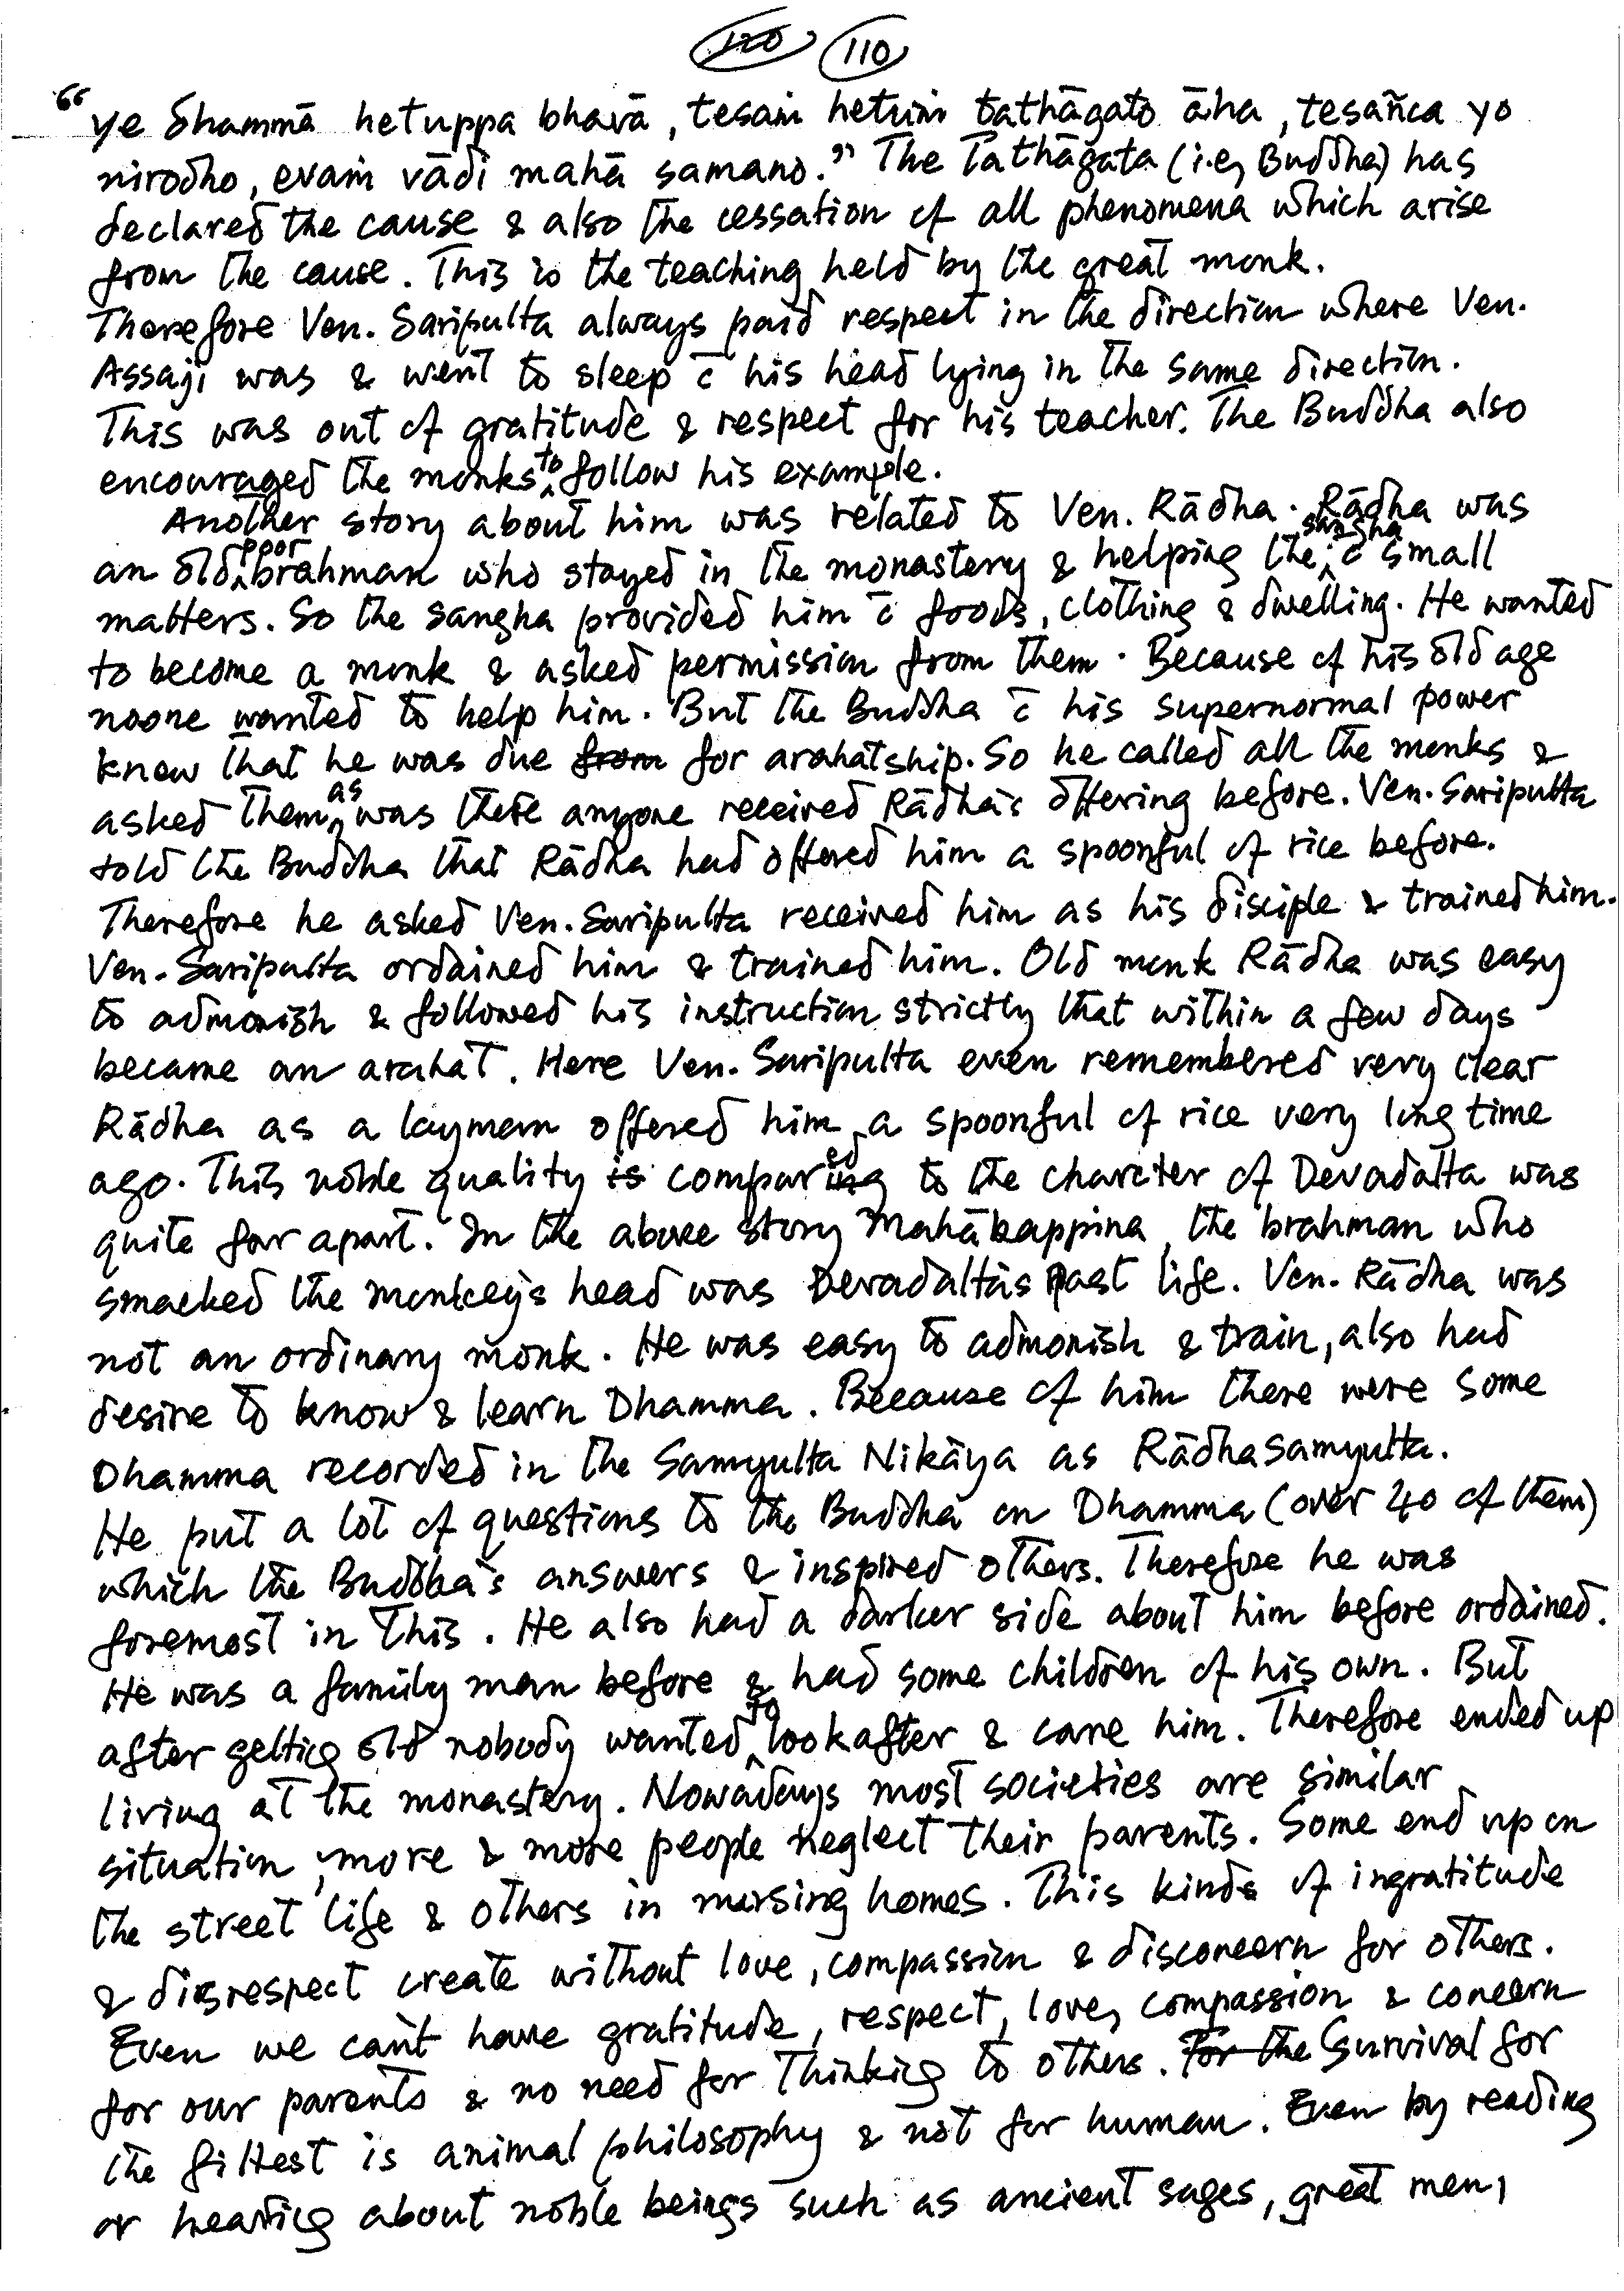 120 110
"ye dhammā hetuppa bhavā, tesaṁ hetuṁ tathāgato āha, tesañca yo
nirodho, evaṁ vādi mahā samano." The Tathāgata (i.e, Buddha) has
declared the cause & also the cessation of all phenomena which arise
from the cause. This is the teaching held by the great monk.
Therefore Ven. Saripulta always paid respect in the direction where Ven.
Assaji was & went to sleep c̄ his head lying in the same direction.
This was out of gratitude & respect for his teacher. The Buddha also
encouraged the monks to follow his example.
Another story about him was related to Ven. Rādha. Rādha was
an old poor brahman who stayed in the monastery & helping the sangha c̄ small
matters. So the sangha provided him c̄ foods, clothing & dwelling. He wanted
to become a monk & asked permission from them. Because of his old age
noone wanted to help him. But the Buddha c̄ his supernormal power
knew that he was due from for arahatship. So he called all the monks &
asked them as was there anyone received Rādha's offering before. Ven. Saripulta
told the Buddha that Rādha had offered him a spoonful of rice before.
Therefore he asked Ven. Saripulta received him as his disciple & trained him.
Ven. Saripulta ordained him & trained him. Old monk Rādha was easy
to admonish & followed his instruction strictly that within a few days
became an arahat. Here Ven. Saripulta even remembered very clear
Rādha as a layman offered him a spoonful of rice very long time
ago. This noble quality is compared to the charcter of Devadatta was
quite far apart. In the above story Mahākappina, the brahman who
smacked the monkey's head was Devadatta's past life. Ven. Rādha was
not an ordinary monk. He was easy to admonish & train, also had
desire to know & learn Dhamma. Because of him there were some
Dhamma recorded in the Samyutta Nikāya as Rādhasamyutta.
He put a lot of questions to the Buddha on Dhamma (over 40 of them)
which the Buddha's answers & inspired others. Therefore he was
foremost in this. He also had a darker side about him before ordained.
He was a family man before & had some children of his own. But
after getting old nobody wanted to look after & care him. Therefore ended up
living at the monastery. Nowadays most societies are similar
situation, more & more people neglect their parents. Some end up on
the street life & others in nursing homes. This kinds of ingratitude
& disrespect create without love, compassion & disconcern for others.
Even we can't have gratitude, respect, love, compassion & concern
for our parents & no need for thinking to others. For the Survival for
the fittest is animal philosophy & not for human. Even by reading
or hearing about noble beings such as ancient sages, great men,